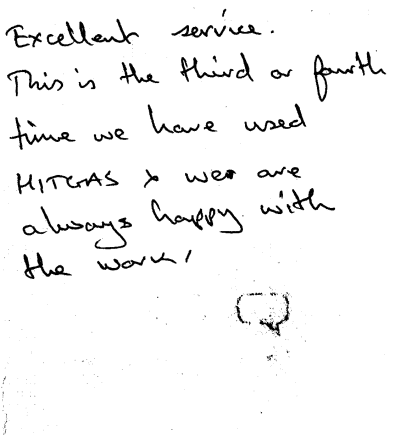 Excellent service.
This is the third or fourth
time we have used
HITGAS & we are
always happy with
the work!